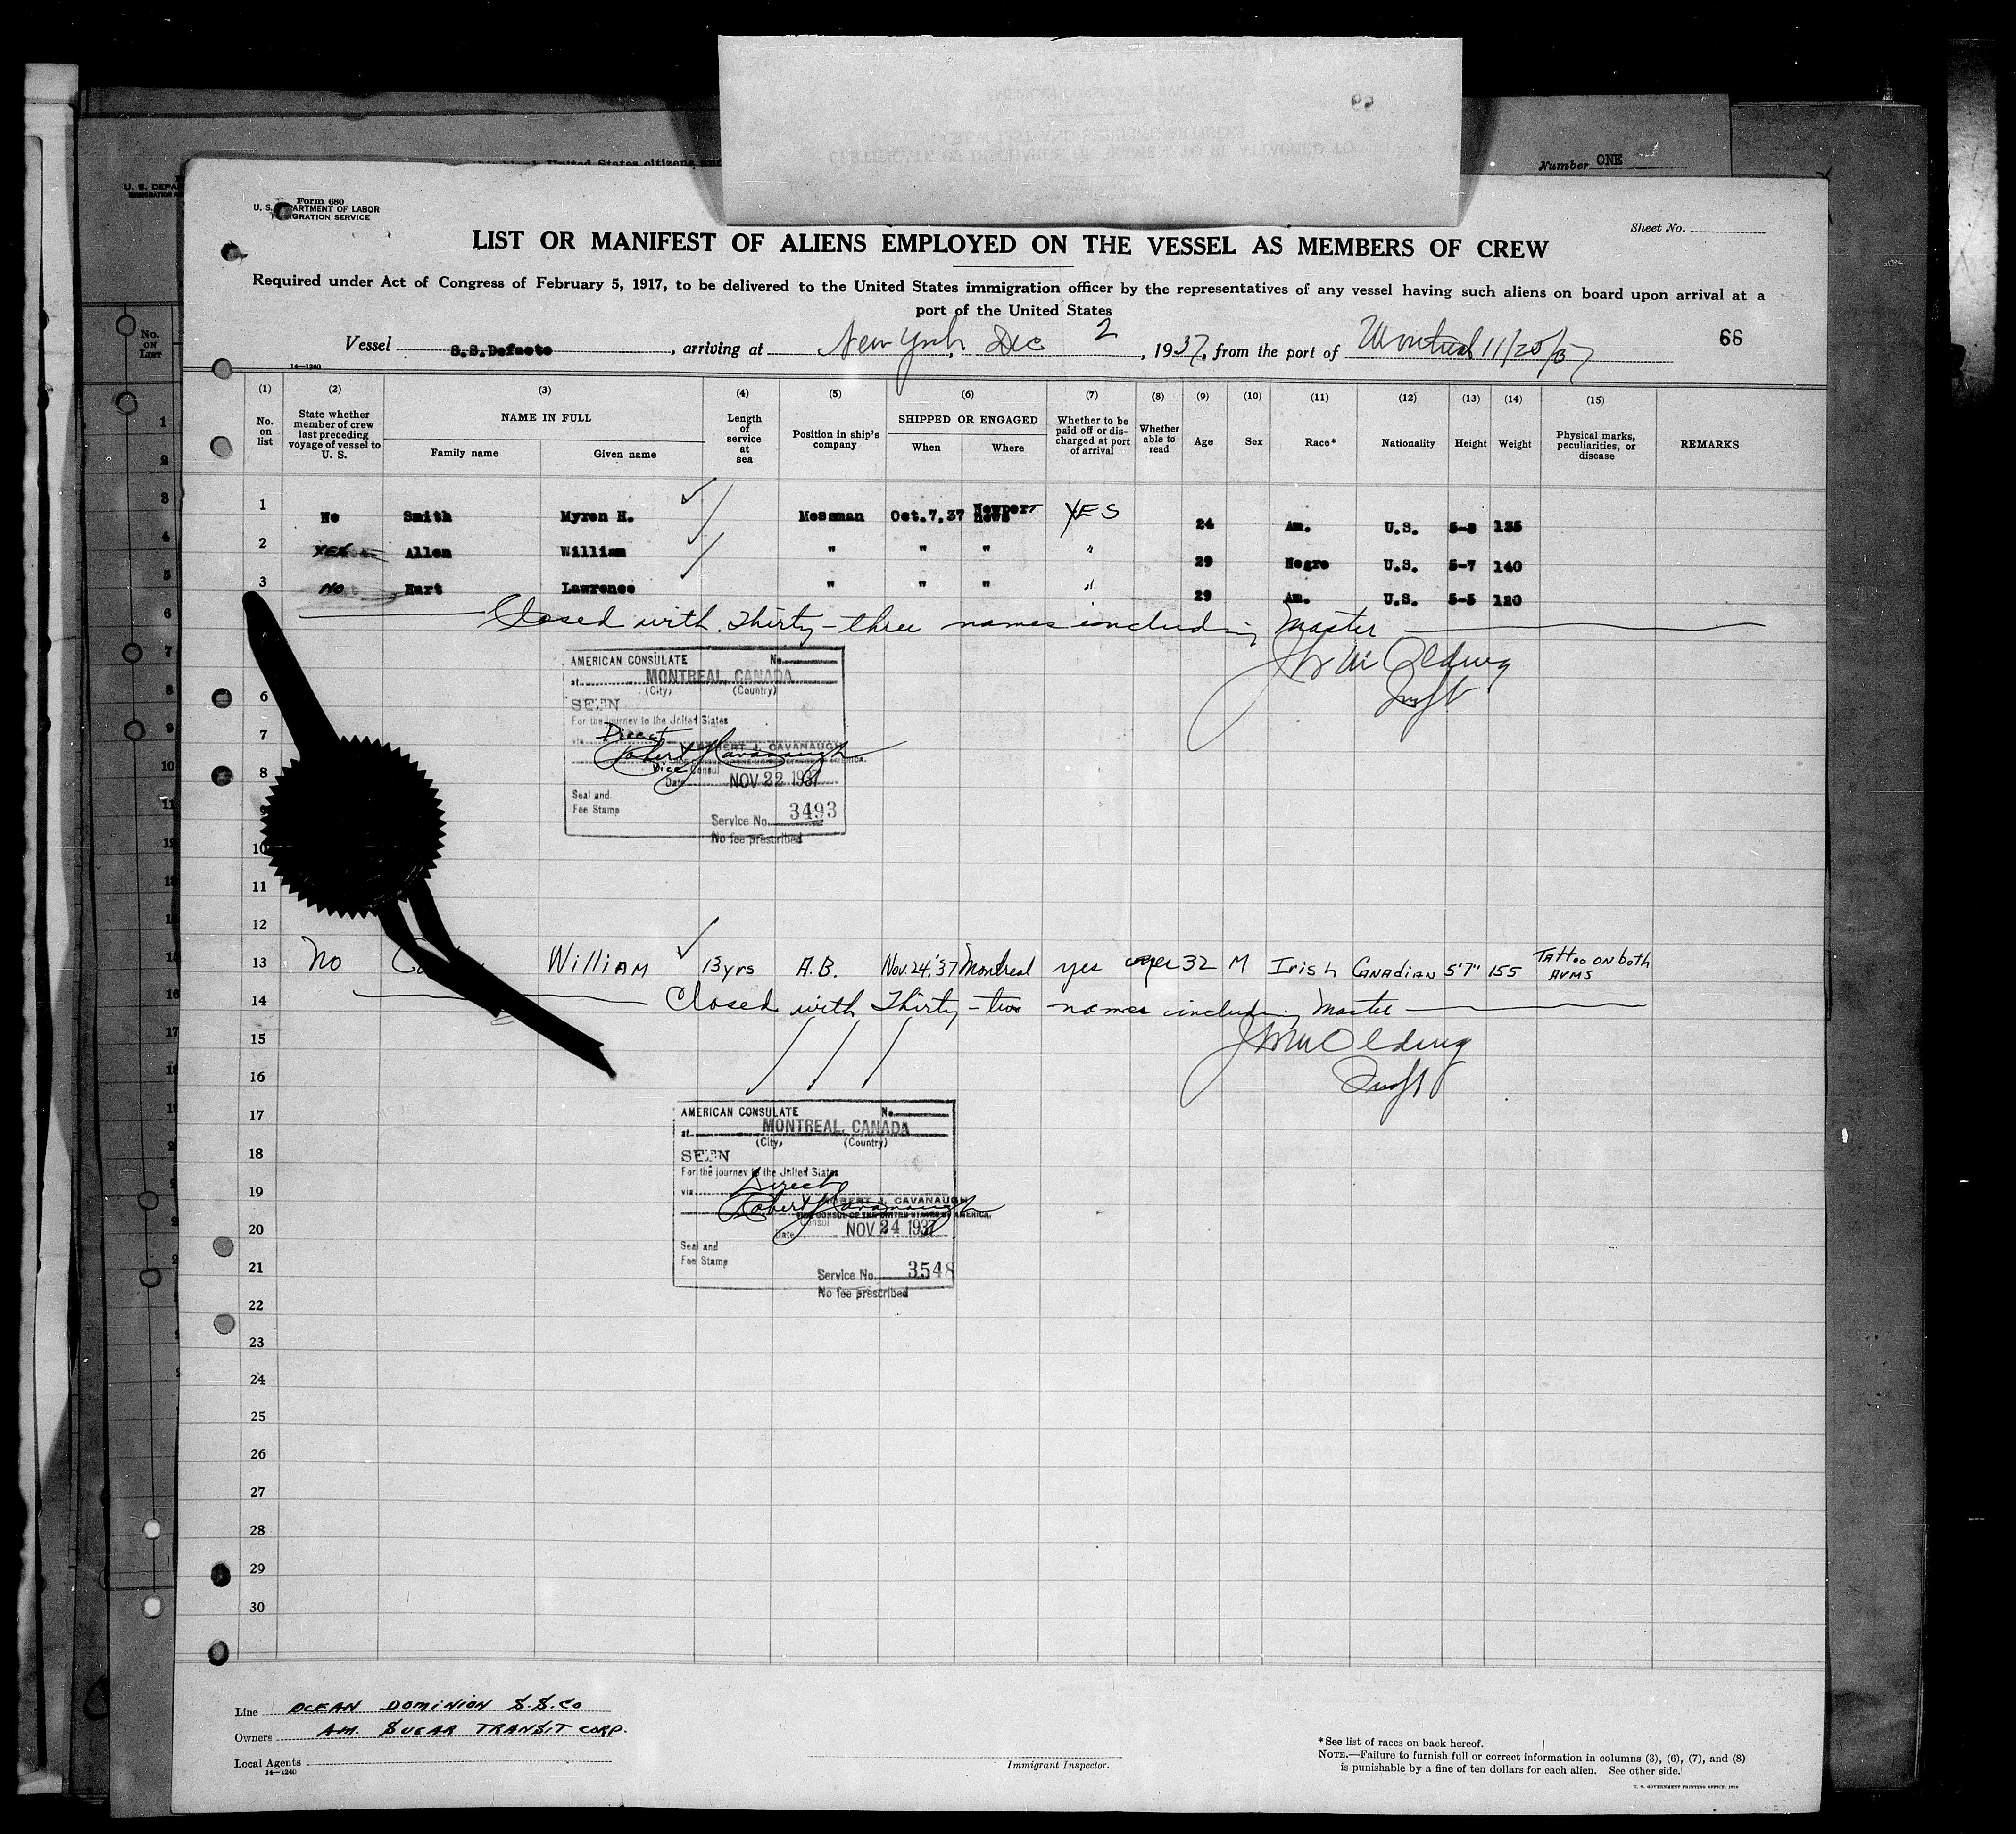 Number ONE
Form 680
U. S. DEPARTMENT OF LABOR
IMMIGRATION SERVICE
Sheet No.
LIST OR MANIFEST OF ALIENS EMPLOYED ON THE VESSEL AS MEMBERS OF CREW
Required under Act of Congress of February 5, 1917, to be delivered to the United States immigration officer by the representatives of any vessel having such aliens on board upon arrival at a
port of the United States
Vessel S.S.Defacto, arriving at New York, Dec 2, 1937, from the port of Montreal 11/25/37
66
14—1240
(1) (2) (3) (4) (5) (6) (7) (8) (9) (10) (11) (12) (13) (14) (15)
No. on list
State whether member of crew last preceding voyage of vessel to U. S.
NAME IN FULL
Family name Given name
Length of service at sea
Position in ship's company
SHIPPED OR ENGAGED
When Where
Whether to be paid off or discharged at port of arrival
Whether able to read
Age Sex Race* Nationality Height Weight
Physical marks, peculiarities, or disease
REMARKS
1 No Smith Myron H. Messman Oct.7,37 Newport News YES 24 Am. U.S. 5-8 135
2 YES Allen William " " " " 29 Negro U.S. 5-7 140
3 NO Hart Lawrence " " " " 29 Am. U.S. 5-5 120
Closed with Thirty-three names including Master
AMERICAN CONSULATE No.
at MONTREAL, CANADA
(City) (Country)
SEEN
For the journey to the United States
via Direct
ROBERT J. CAVANAUGH
Vice Consul
Date NOV 22 1937
Seal and
Fee Stamp
Service No. 3493
No fee prescribed
6
7
8
9
10
11
12
13 No William 13 yrs A.B. Nov.24,'37 Montreal yes 32 M Irish Canadian 5'7" 155 Tattoo on both arms
14 Closed with Thirty-two names including Master
15
16
AMERICAN CONSULATE No.
at MONTREAL, CANADA
(City) (Country)
SEEN
For the journey to the United States
via Direct
ROBERT J. CAVANAUGH
VICE CONSUL OF THE UNITED STATES OF AMERICA.
Consul
Date NOV 24 1937
Seal and
Fee Stamp
Service No. 3548
No fee prescribed
17
18
19
20
21
22
23
24
25
26
27
28
29
30
Line OCEAN DOMINION S.S.CO
Owners AM. SUGAR TRANSIT CORP.
Local Agents
14—1240
Immigrant Inspector.
*See list of races on back hereof.
NOTE.—Failure to furnish full or correct information in columns (3), (6), (7), and (8)
is punishable by a fine of ten dollars for each alien. See other side.